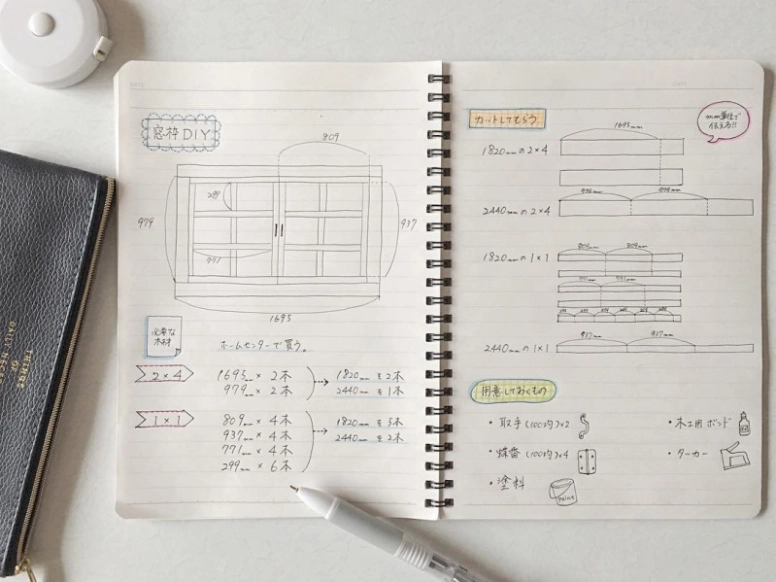 窓枠DIY
809
299
979
937
771
1695
必要な
木材
ホームセンターで買う。
2×4
1695mm × 2本
979mm × 2本
1820mm を2本
2440mm を1本
1×1
809mm × 4本
937mm × 4本
771mm × 4本
299mm × 6本
1820mm を5本
2440mm を2本
カットしてもらう
mm単位で
伝える!!
1820mmの2×4
1695mm
2440mmの2×4
1820mmの1×1
809mm 809mm
2440mmの1×1
937mm 937mm
用意しておくもの
・取手(100均)×2
・蝶番(100均)×4
・塗料
paint
・木工用ボンド
・タッカー